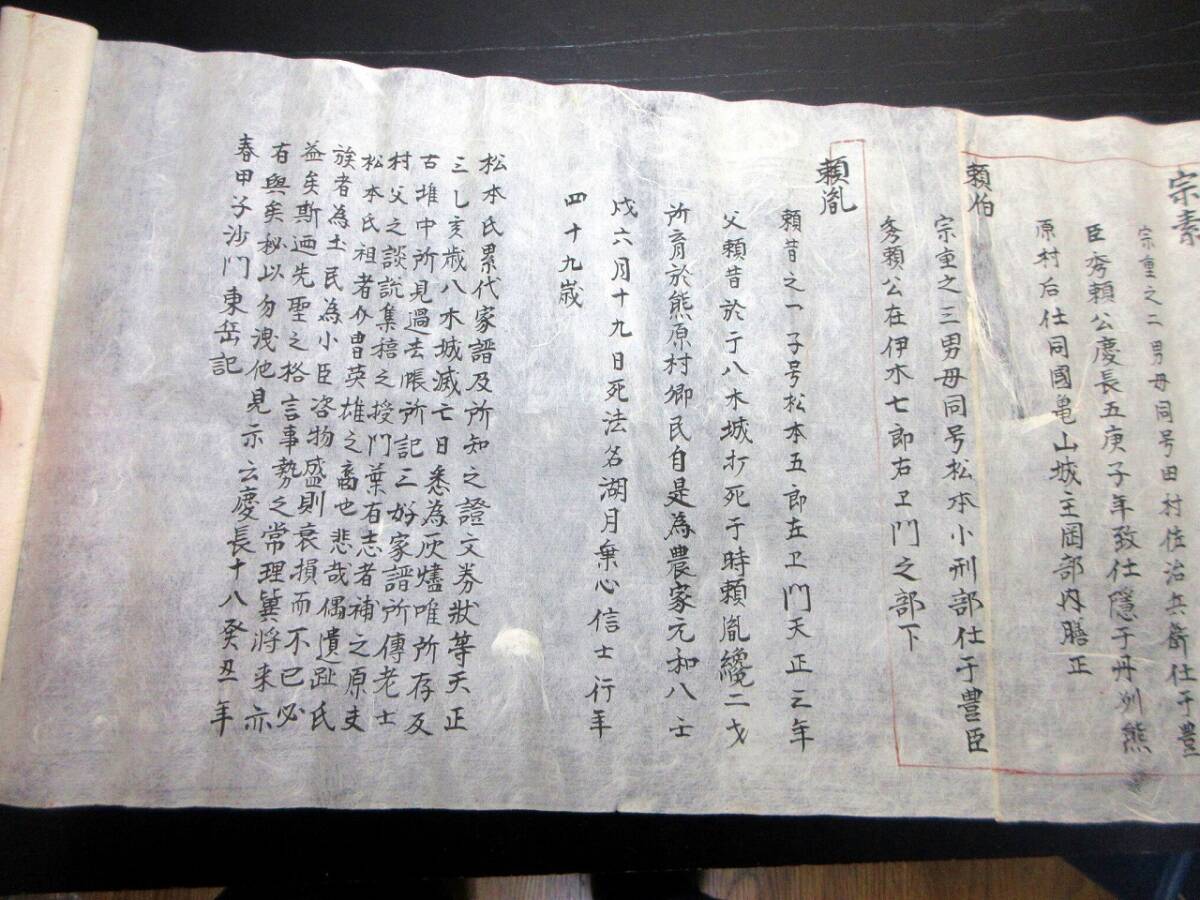 宗素
宗重之二男母同号田村佐治兵衛仕于豊
臣秀頼公慶長五庚子年致仕隠于丹州熊
原村后仕同國亀山城主岡部内膳正
頼伯
宗重之三男母同号松本小刑部仕于豊臣
秀頼公在伊木七郎右ヱ門之部下
頼胤
頼昔之一子号松本五郎左ヱ門天正三年
父頼昔於于八木城打死于時頼胤纔二才
所育於熊原村郷民自是為農家元和八壬
戌六月十九日死法名湖月乗心信士行年
四十九歳
松本氏累代家譜及所知之證文券状等天正
三乙亥歳八木城滅亡日悉為灰燼唯所存及
古堆中所見過去帳所記三好家譜所傳老士
村父之談説集稿之授門葉有志者補之原夫
松本氏祖者介曽英雄之裔也悲哉偶遺趾氏
族者為土民為小臣咨物盛則衰損而不已必
益矣斯迺先聖之格言事勢之常理冀将来亦
有與矣秘以勿洩他見示云慶長十八癸丑年
春甲子沙門東岳記